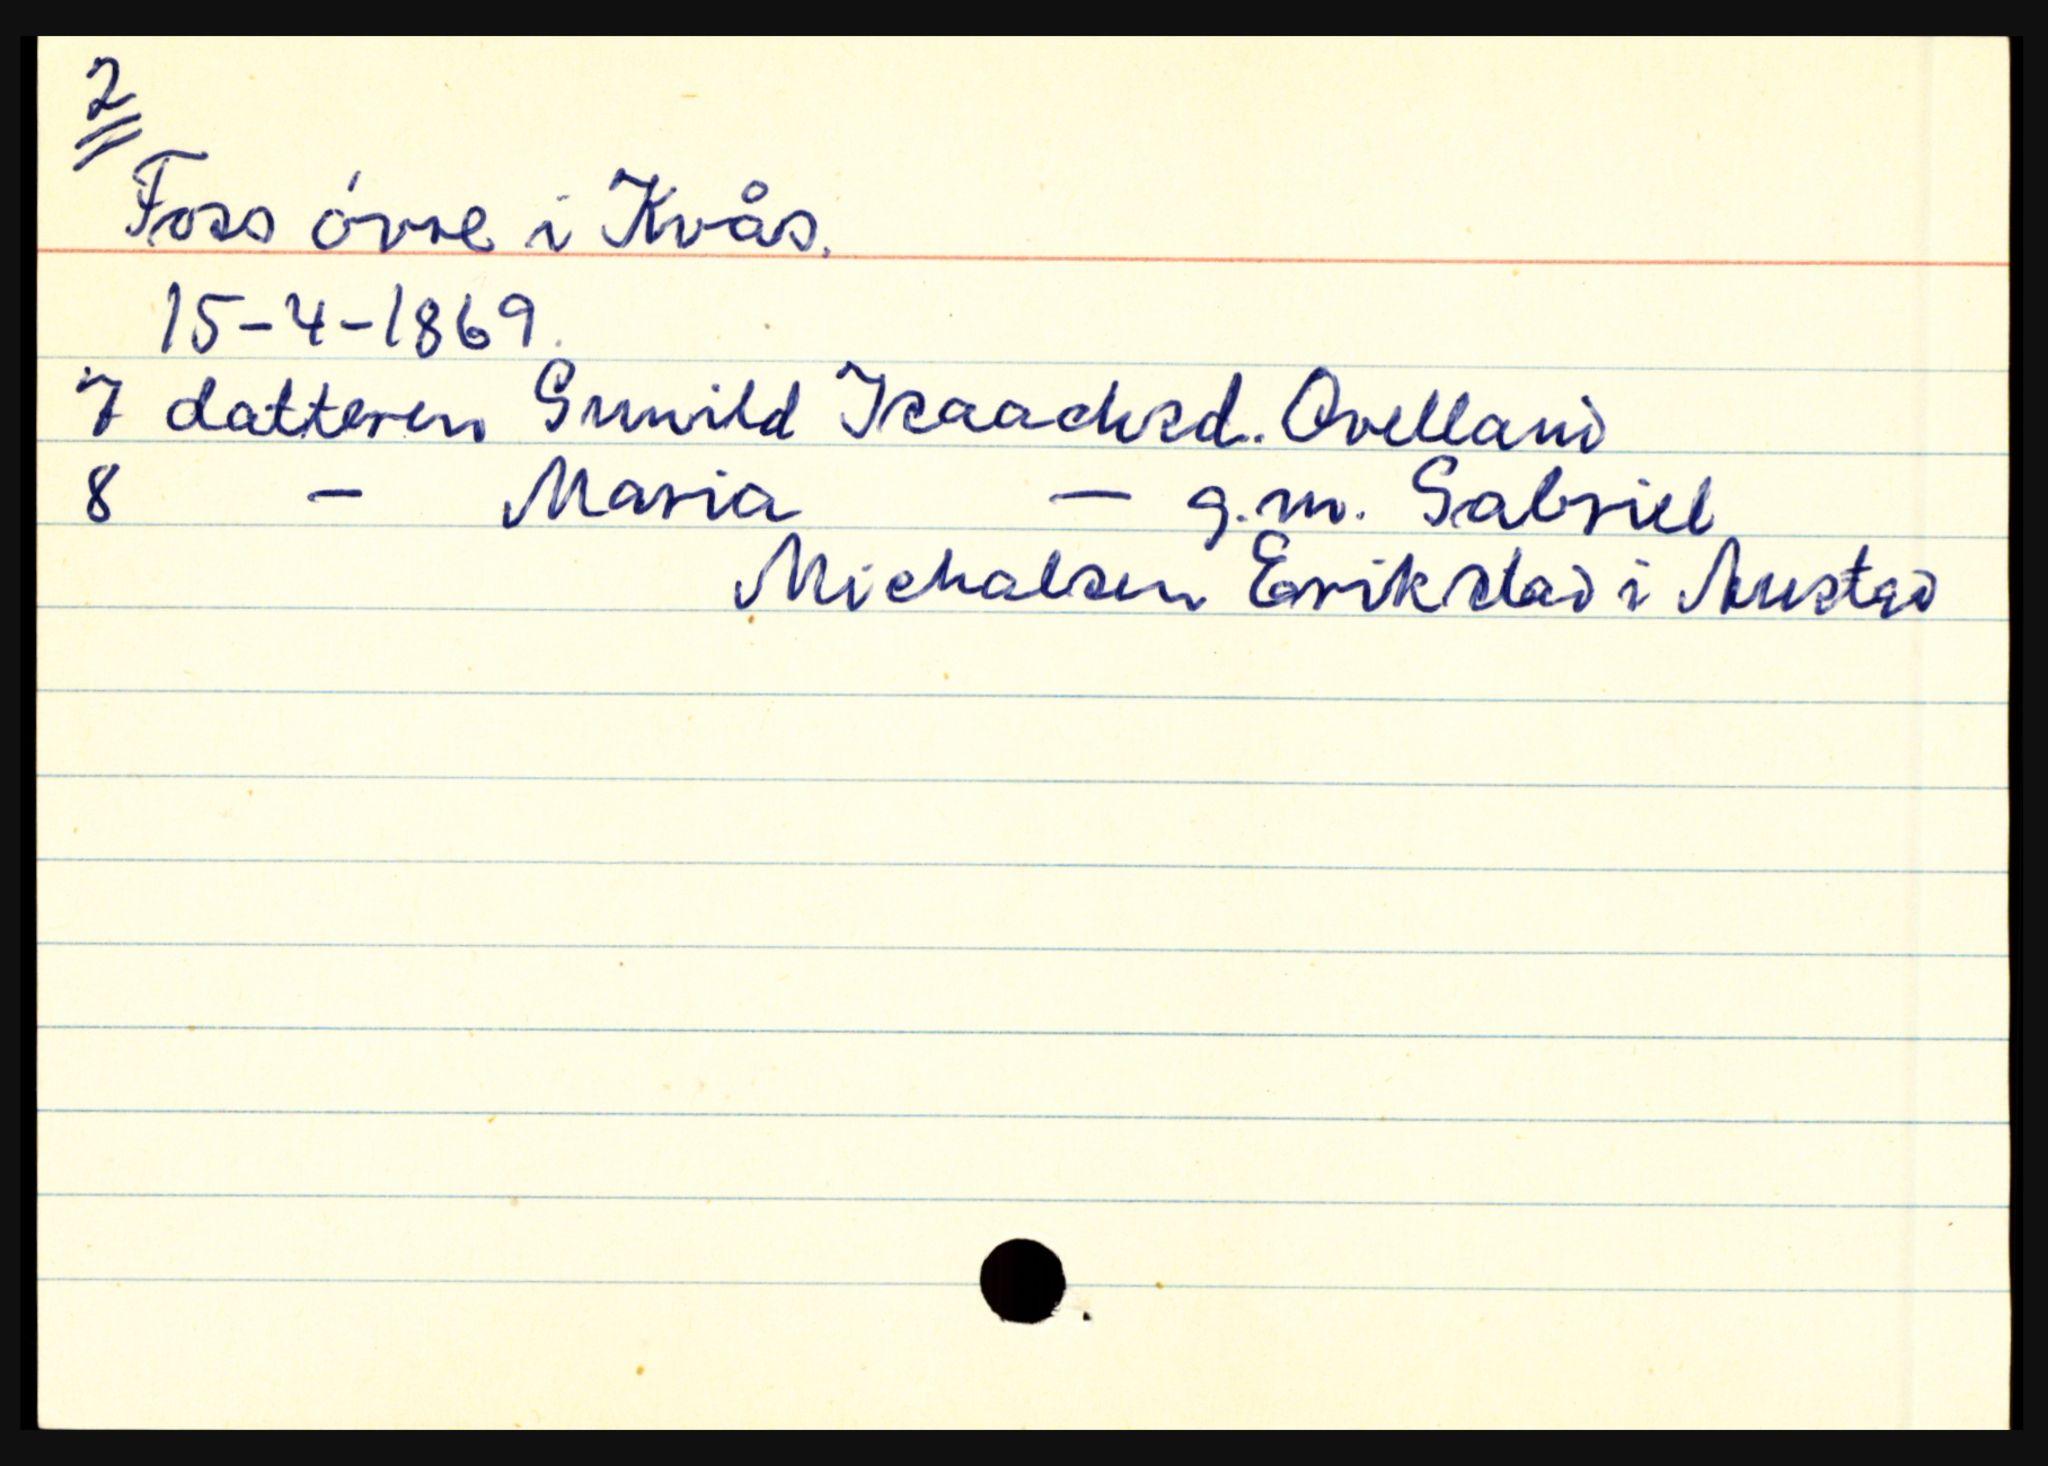 2
Foss óvre i Kvås.
15-4-1869.
7 datteren Gunvild Isaachsd. Ovelland
8 — Maria — g.m. Gabriel
Michalsen Erikstad i Austad